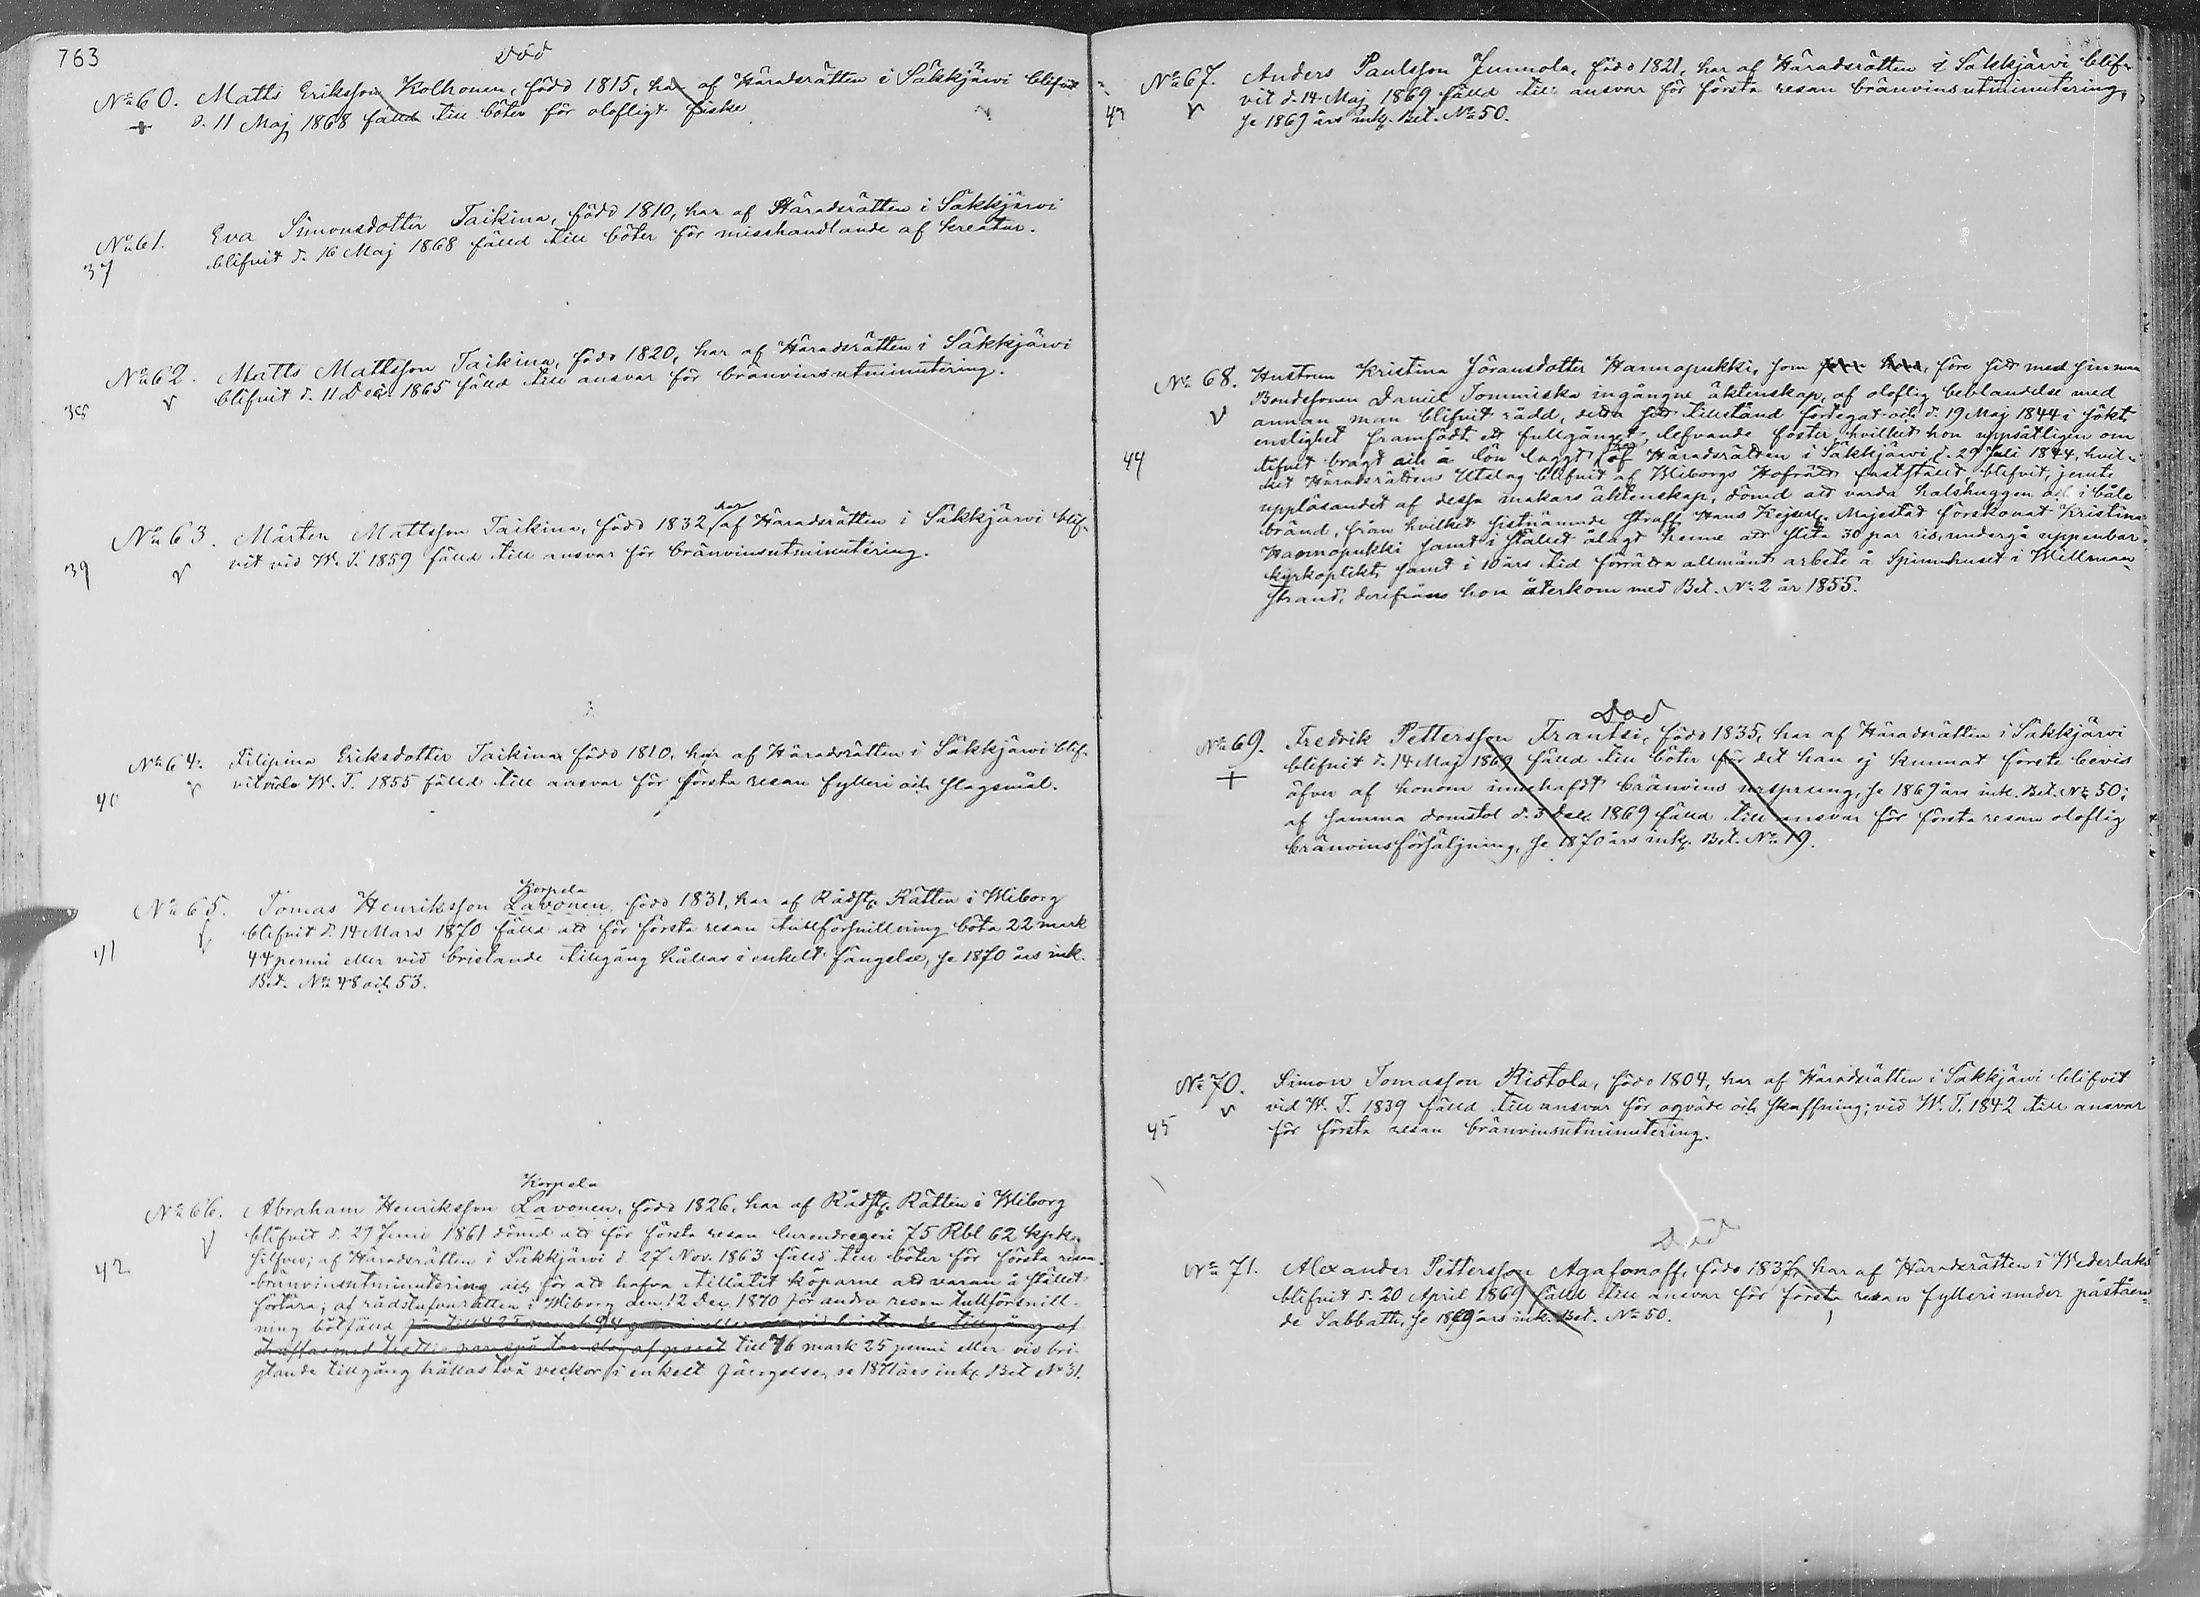 763
Död
No 60. Matts Eriksson Kolhonen, född 1815, har af Häradsrätten i Säkkjärvi blifvit
+ d. 11 Maj 1868 fälld till böter för olofligt fiske.
No 61. Eva Simonsdotter Taikina, född 1810, har af Häradsrätten i Säkkjärvi
37 blifvit d. 16 Maj 1868 fälld till böter för misshandlande af kreatur.
No 62. Matts Mattsson Taikina, född 1820, har af Häradsrätten i Säkkjärvi
38 v blifvit d. 11 Dec. 1865 fälld till ansvar för bränvinsutminutering.
har
No 63. Mårten Mattsson Taikina, född 1832, af Häradsrätten i Säkkjärvi blif-
39 v vit vid W. T. 1859 fälld till ansvar för bränvinsutminutering.
No 64. Filipina Eriksdotter Taikina född 1810, har af Häradsrätten i Säkkjärvi blif-
40 v vit vid W. T. 1855 fälld till ansvar för första resan fylleri och slagsmål.
Korpela
No 65. Tomas Henriksson Lavonen, född 1831, har af Rådst. Rätten i Wiborg
41 v blifvit d. 14 Mars 1870 fälld att för första resan tullförsnillning böta 22 mark
44 penni eller vid bristande tillgång hållas i enkelt fängelse, se 1870 års ink.
Bet. No 48 och 53.
Korpela
No 66. Abraham Henriksson Lavonen, född 1826, har af Rådst. Rätten i Wiborg
v blifvit d. 29 Juni 1861 dömd att för första resan lurendregeri 75 Rbl 62 kpk.
42 silfver; af Häradsrätten i Säkkjärvi d. 27 Nov. 1863 fälld till böter för första resan
bränvinsutminutering och för att hafva tillåtit köparne att varan å stället
förtära; af rådstufvurätten i Wiborg den 12 Dec. 1870 för andra resan tullförsnill-
ning bötfälld
till 76 mark 25 penni eller vid bri-
stande tillgång hållas två veckor i enkelt fängelse, se 1871 års ink. Bet No 31.
No 67. Anders Paulsson Junnola, född 1821, har af Häradsrätten i Säkkjärvi blif-
43 v vit d. 14 Maj 1869 fälld till ansvar för första resan bränvinsutminutering,
se 1869 års ink. Bet. No 50.
No 68. Hustrun Kristina Jöransdotter Hannopukki, som före sitt med sin man
v Bondesonen Daniel Tommiska ingångne äktenskap, af oloflig beblandelse med
annan man blifvit rådd, detta sitt tillstånd förtegat och d. 19 Maj 1844 i sökt
enslighet framfödt ett fullgånget, lefvande foster, hvilket hon uppsåtligen om
44 lifvit bragt och å lön laggt af Häradsrätten i Säkkjärvi d. 29 Juli 1844, hvil-
ket Häradsrättens Utslag blifvit af Wiborgs Hofrätt fastställt, blifvit, jemte
upplösandet af dessa makars äktenskap, dömd att varda halshuggen och i båle
bränd, från hvilket sistnämnde straff Hans Kejserl. Majestät förskonat Kristina
Hannopukki samt i stället ålagt henne att slita 30 par ris, undergå uppenbar
kyrkoplikt samt i 10 års tid förrätta allmänt arbete å Spinnhuset i Willman-
strand, derifrån hon återkom med Bet. No 2 år 1855.
Död
No 69. Fredrik Pettersson Frantsi, född 1835, har af Häradsrätten i Säkkjärvi
+ blifvit d. 14 Maj 1869 fälld till böter för det han ej kunnat förete bevis
öfver af honom innehaft bränvins ursprung, se 1869 års ink. Bet. No 50;
af samma domstol d. 3 Dec. 1869 fälld till ansvar för första resan oloflig
bränvinsförsäljning, se 1870 års ink. Bet. No 19.
No 70. Simon Tomasson Ristola, född 1804, har af Häradsrätten i Säkkjärvi blifvit
v vid W. T. 1839 fälld till ansvar för oqväde och skuffning; vid W. T. 1842 till ansvar
45 för första resan bränvinsutminutering.
Död
No 71. Alexander Pettersson Agafonoff, född 1837, har af Häradsrätten i Wederlaks
blifvit d. 20 April 1869 fälld till ansvar för första resan fylleri under påståen-
de Sabbath, se 1869 års ink. Bet. No 50.